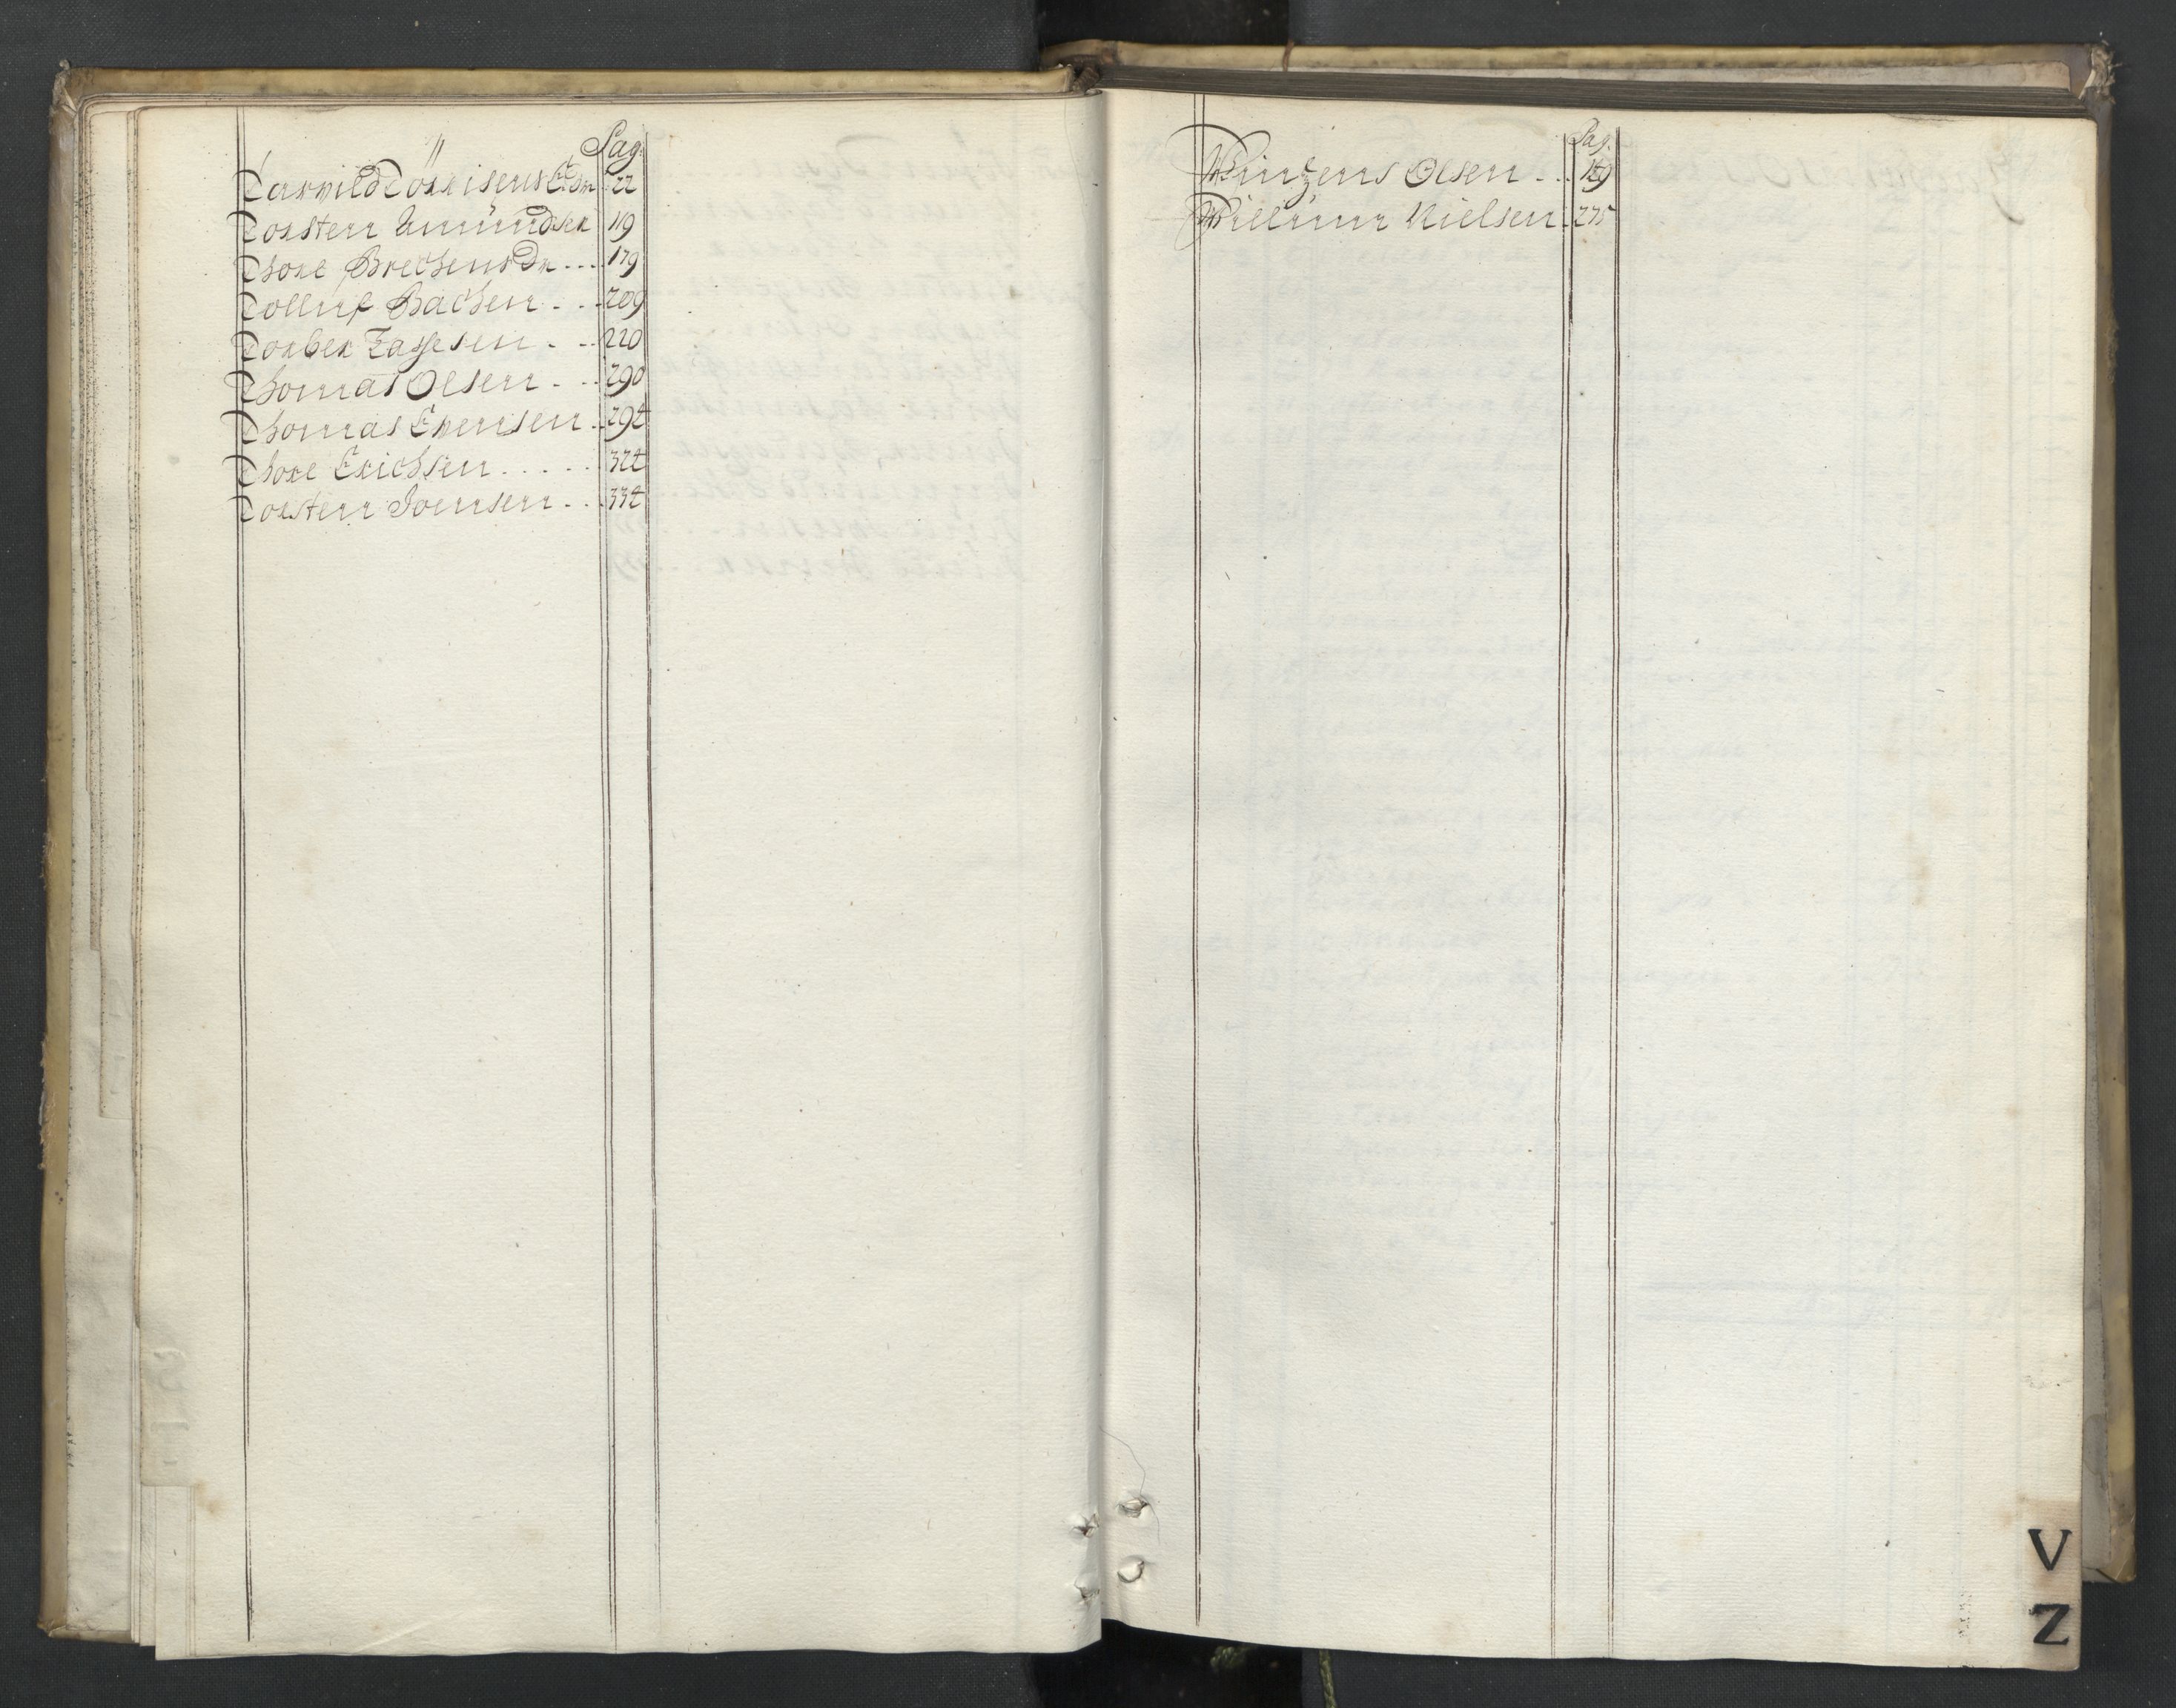 Pag:
Tarkvild Torkisens Eedn 22
Torsten Amundsen 119
Thore Brechensdn ... 179
Tolluf Bachen ... 209
Torber Tassesen ... 220
Thomas Olsen ... 290
Thomas Evensen .. 294
Thore Erichsen ..... 324
Torsten Joensen ... 334
Pag:
Winzens Olsen ... 159
Willum Nielsen . 275
V
Z